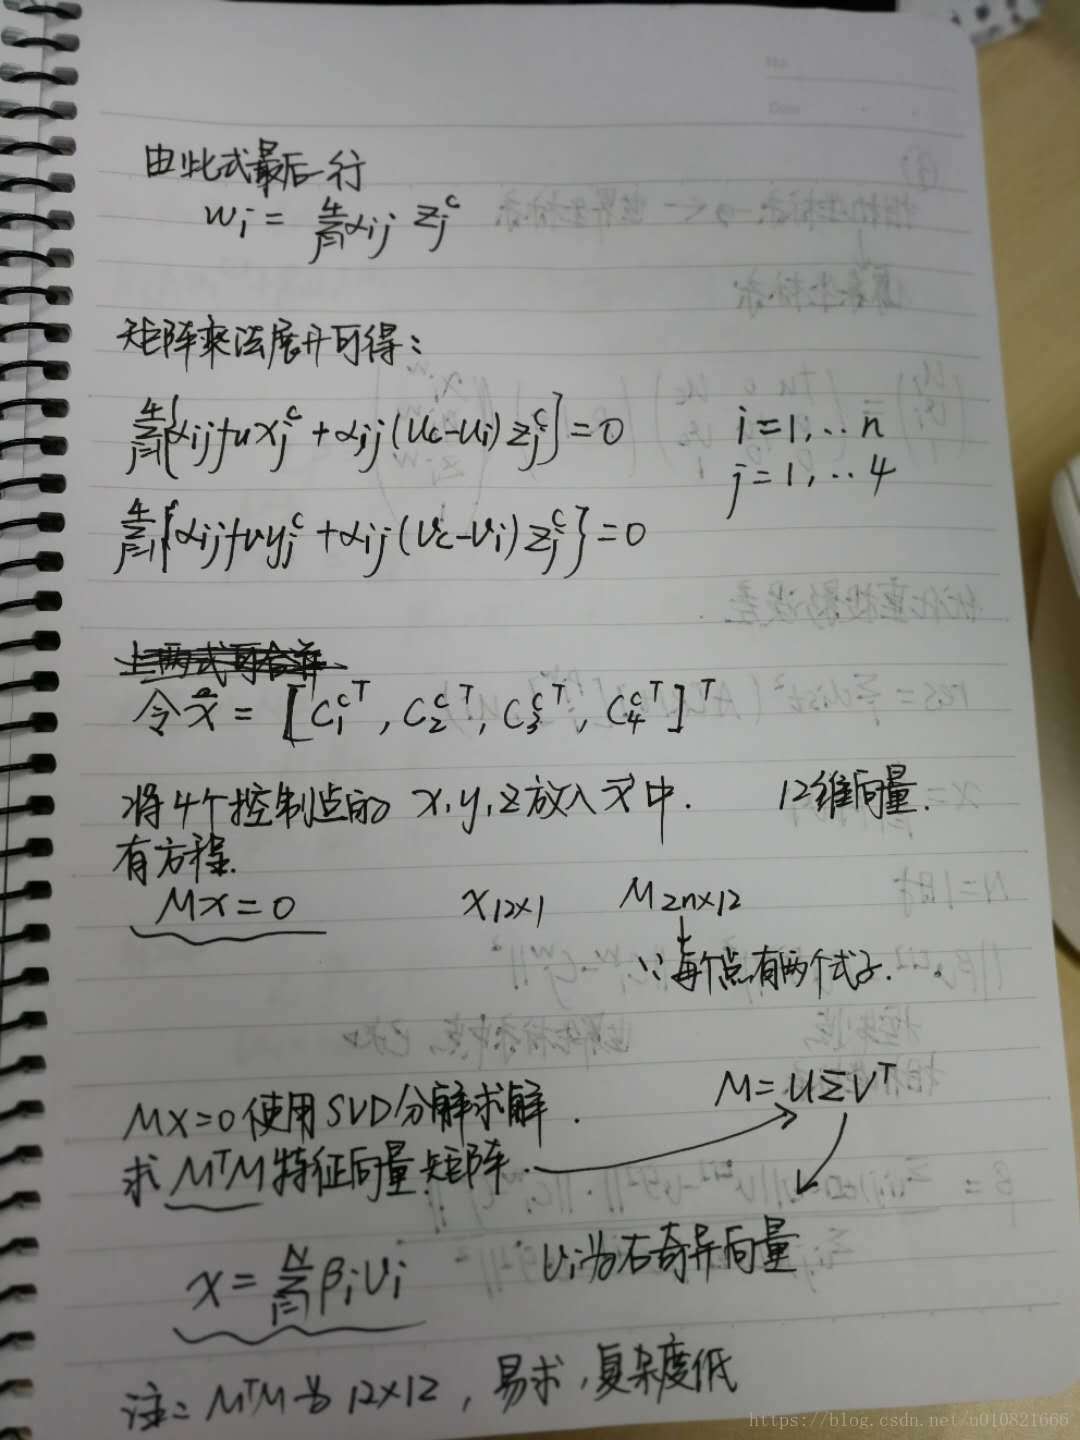 由此式最后一行
wᵢ = Σ⁴ⱼ₌₁ αᵢⱼ zⱼᶜ
矩阵乘法展开可得:
Σ⁴ⱼ₌₁{αᵢⱼ fu xⱼᶜ + αᵢⱼ (uc-uᵢ) zⱼᶜ} = 0 i=1,..n
j=1,..4
Σ⁴ⱼ₌₁{αᵢⱼ fv yⱼᶜ + αᵢⱼ (vc-vᵢ) zⱼᶜ} = 0
上两式可合并
令 x⃗ = [C₁ᶜᵀ, C₂ᶜᵀ, C₃ᶜᵀ, C₄ᶜᵀ]ᵀ
将4个控制点的 x,y,z 放入 x⃗ 中. 12维向量.
有方程.
Mx=0 x₁₂ₓ₁ M₂ₙₓ₁₂
∵每个点有两个式子.
M=UΣVᵀ
Mx=0 使用SVD分解求解.
求 MᵀM 特征向量矩阵.
x = Σᴺᵢ₌₁ βᵢvᵢ vᵢ为右奇异向量
注: MᵀM 为 12×12, 易求, 复杂度低
https://blog.csdn.net/u010821666